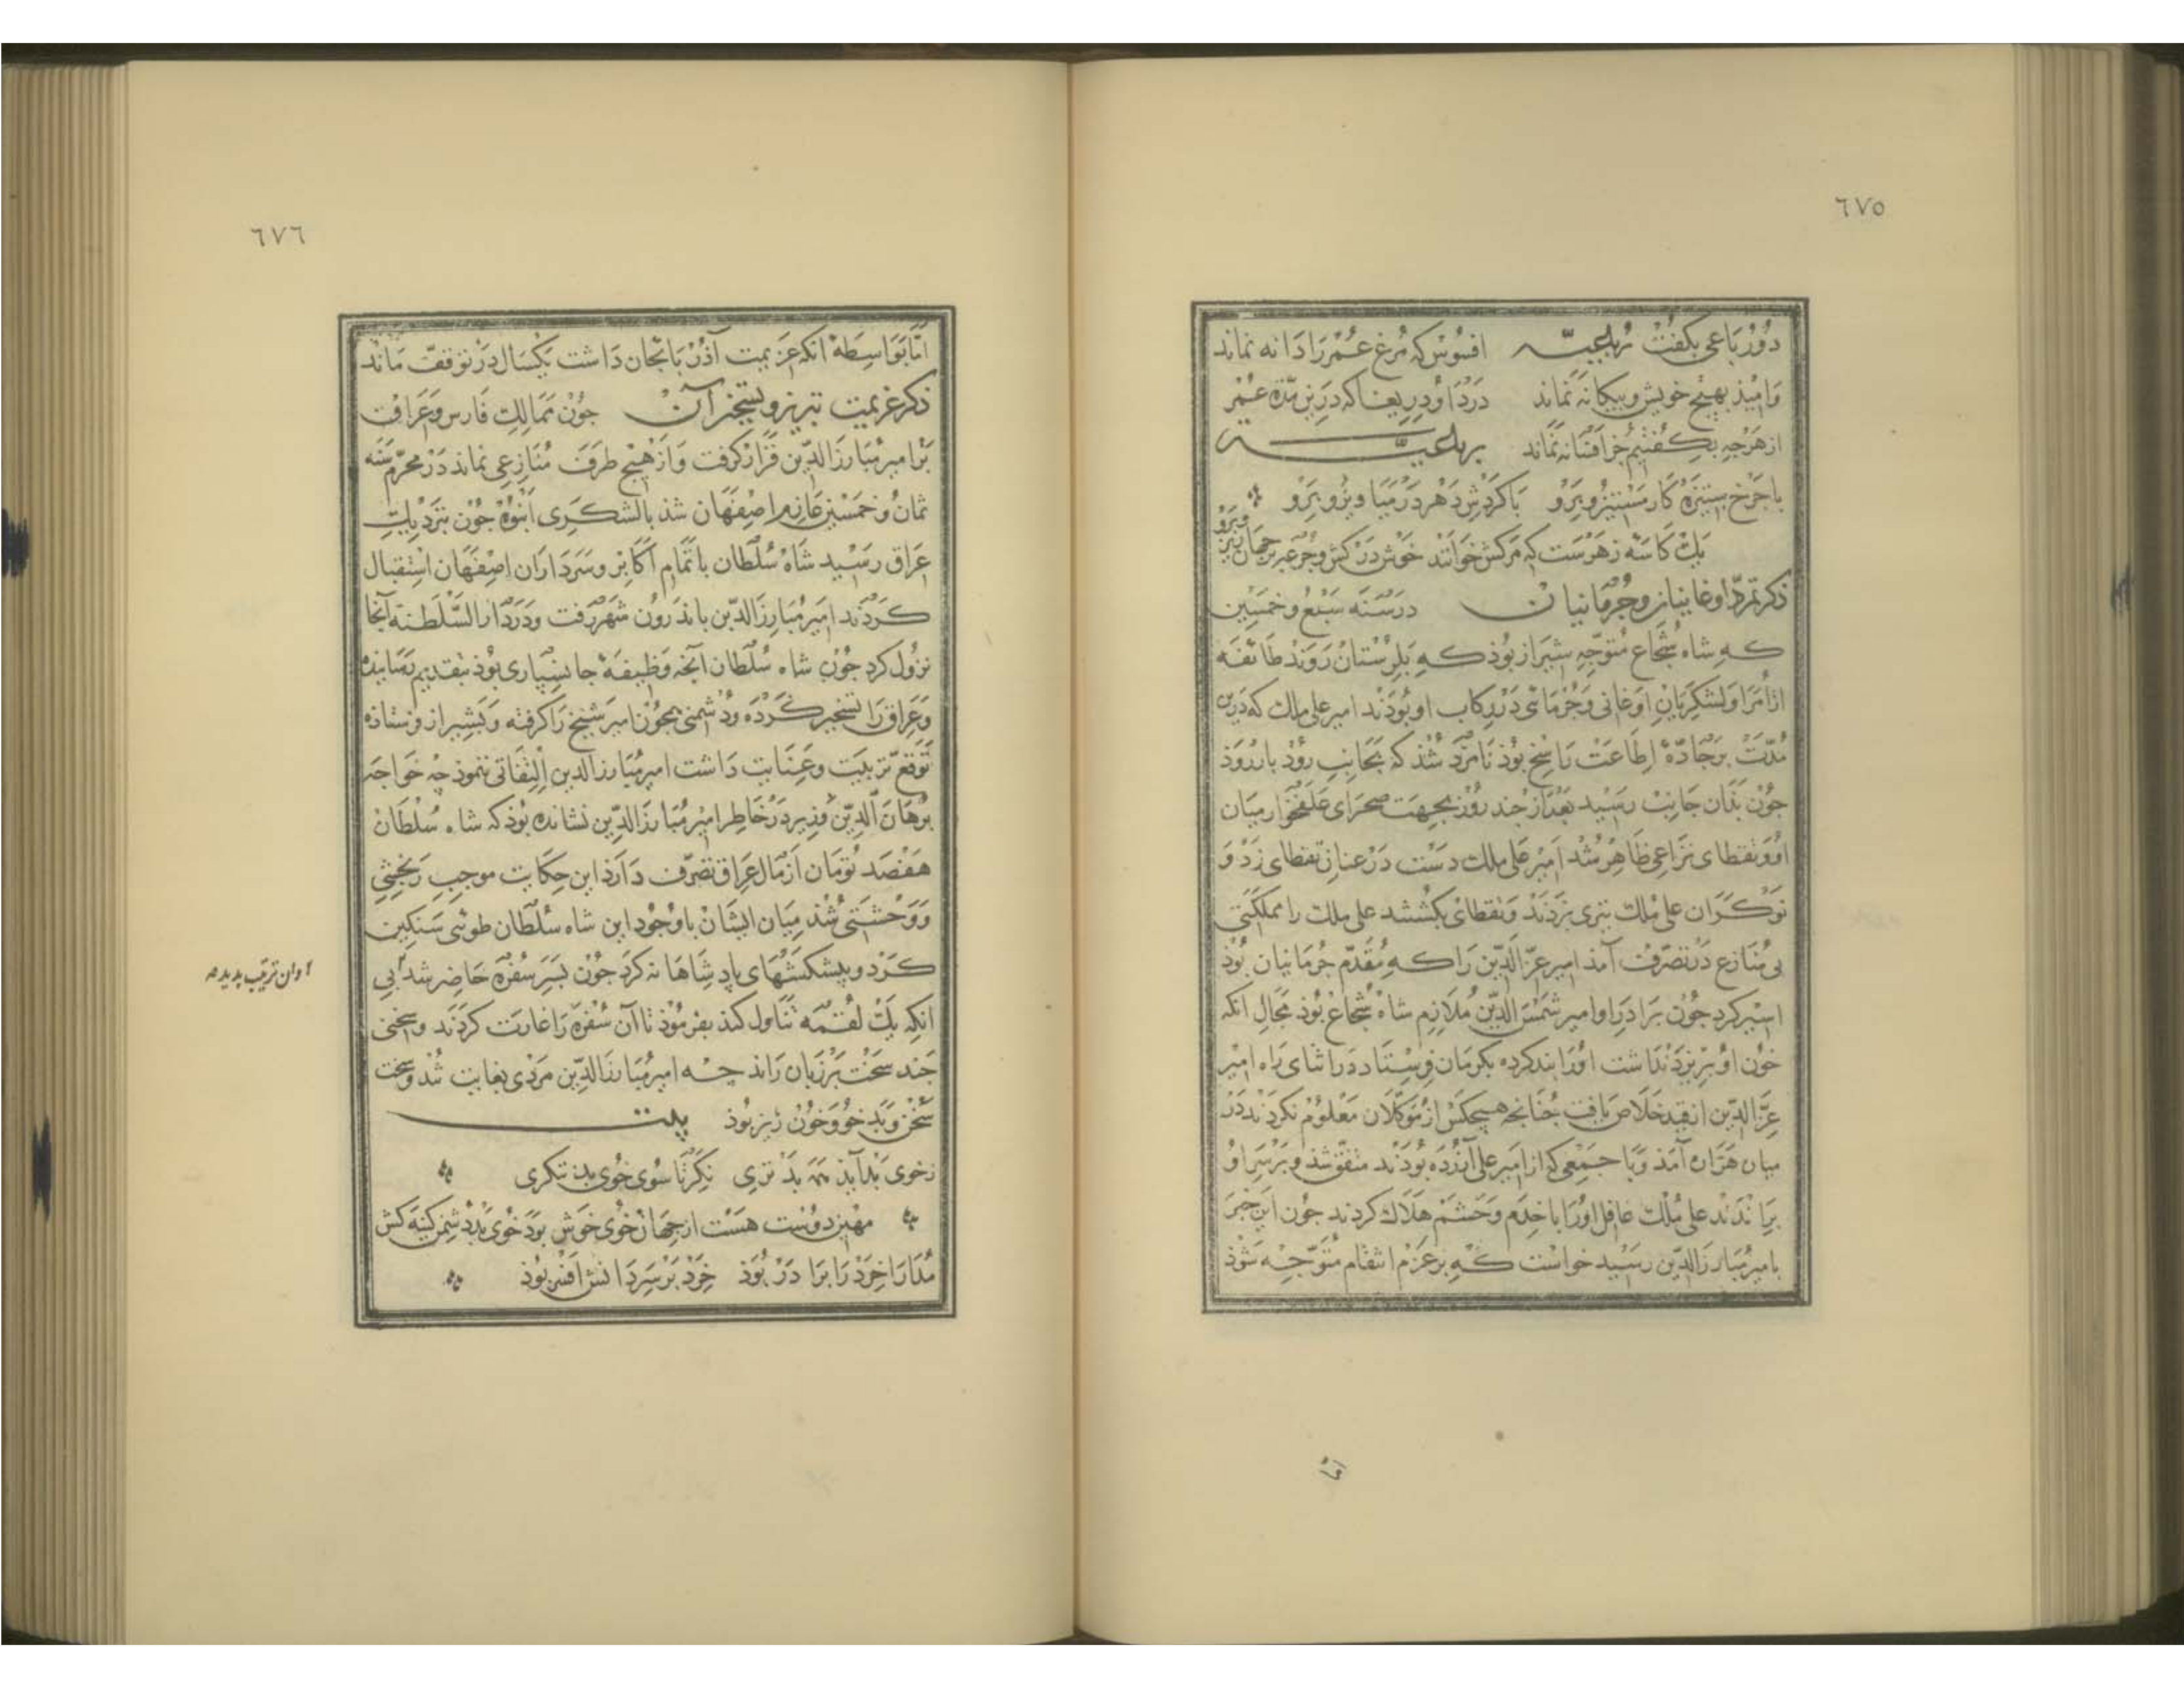 ٦٧٥
دو رباعی بکفت رباعیه افسوس که مرغ عمر را دانه نماند
وامیذ بهیچ خویش و بیکانه نماند دردا و دریغا که درین مدّة عمر
از هرجه بکفتیم جز افسانه نماند رباعیه
با جرخ ستیزه کار مستیز و برو با کردش دهر در میاویز و برو
یک کاسه زهرست که مرکش خوانند خوش درکش و جرعه بر جهان ریز و برو
ذکر تمرّد اوغانیان و جرمانیان در سنه سبع و خمسین
که شاه شجاع متوجّه شیراز بوذ که بلرستان روند طائفه
از امرا و لشکریان اوغانی و جرمائی در رکاب او بوذند امیر علی ملک که درین
مدّت بر جادّه اطاعت راسخ بوذ نامزد شذ که بجانب روذبار روذ
جون بذان جانب رسید بعد از جند روز بجهت صحرای علفخوار میان
او و نقطای نزاعی ظاهر شد امیر علی ملک دست در عنان نقطای زد و
نوکران علی ملک تیری بزدند و نقطای بکشتند علی ملک را مملکتی
بی منازع در تصرّف آمذ امیر عزّ الدّین را که مقدّم جرمانیان بوذ
اسیر کرد جون براذر او امیر شمس الدّین ملازم شاه شجاع بوذ مجال انکه
خون او بریزد نداشت اورا بند کرده بکرمان فرستاد در اثنای راه امیر
عزّ الدّین از قید خلاص یافت جنانجه هیجکس از موکّلان معلوم نکردند در
میان هزاره آمذ و با جمعی که از امیر علی آزرده بوذند متفق شذ و بر سر او
براندند علی ملک غافل اورا با خدم و حشم هلاک کردند جون این خبر
بامیر مبارز الدّین رسید خواست که بر عزم انتقام متوجّه شوذ
امّا
٦٧٦
امّا بواسطهٔ انکه عزیمت آذربایجان داشت یکسال در توقّف ماند
ذکر عزیمت تبریز و تسخیر آن جون ممالک فارس و عراق
بر امیر مبارز الدّین قرار کرفت و از هیج طرف منازعی نماند در محرّم سنه
ثمان و خمسین عازم اصفهان شذ با لشکری انبوه جون بنزدیک
عراق رسید شاه سلطان با تمام اکابر و سرداران اصفهان استقبال
کردند امیر مبارز الدّین باندرون شهر رفت و در دار السّلطنه آنجا
نزول کرد جون شاه سلطان آنجه وظیفه جانسپاری بوذ بتقدیم رسانیده
و عراق را تسخیر کرده و دشمنی همجون امیر شیخ را کرفته و بشیراز فرستاذه
توقع تربیت و عنایت داشت امیر مبارز الدین التفاتی ننموذ جه خواجه
برهان الدّین وزیر در خاطر امیر مبارز الدّین نشانده بوذ که شاه سلطان
هفصد تومان از مال عراق تصرّف دارذ این حکایت موجب رنجشی
و وحشتی شذ میان ایشان باوجود این شاه سلطان طوئی سنکین
کرد و پیشکشهای پادشاهانه کرد جون بسر سفره حاضر شد بی
انکه یک لقمه تناول کند بفرموذ تا آن سفره را غارت کردند و سخنی
جند سخت بر زبان راند جه امیر مبارز الدّین مردی بغایت تند و سخت
سخن و بذخو و خون ریز بوذ بیت
زخوی بد آیذ همه بد تری نکر تا سوی خوی بد ننکری
مهین دوست هست از جهان خوی خوش بود خوی بد دشمن کینه کش
مدارا خرد را براذر بوذ خرد بر سر دانش افسر بوذ